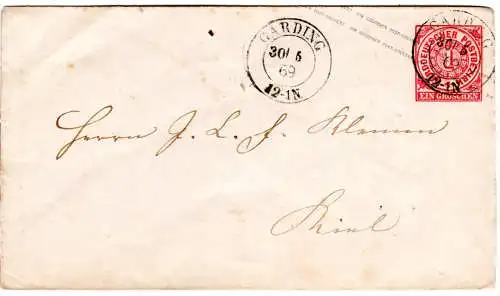 GARDING
30/5
69
12-1N
GARDING
30/5
69
12-1N
NORDDEUTSCHER POSTBEZIRK
1
EIN GROSCHEN
Herrn J. L. F. Klemm
Kiel